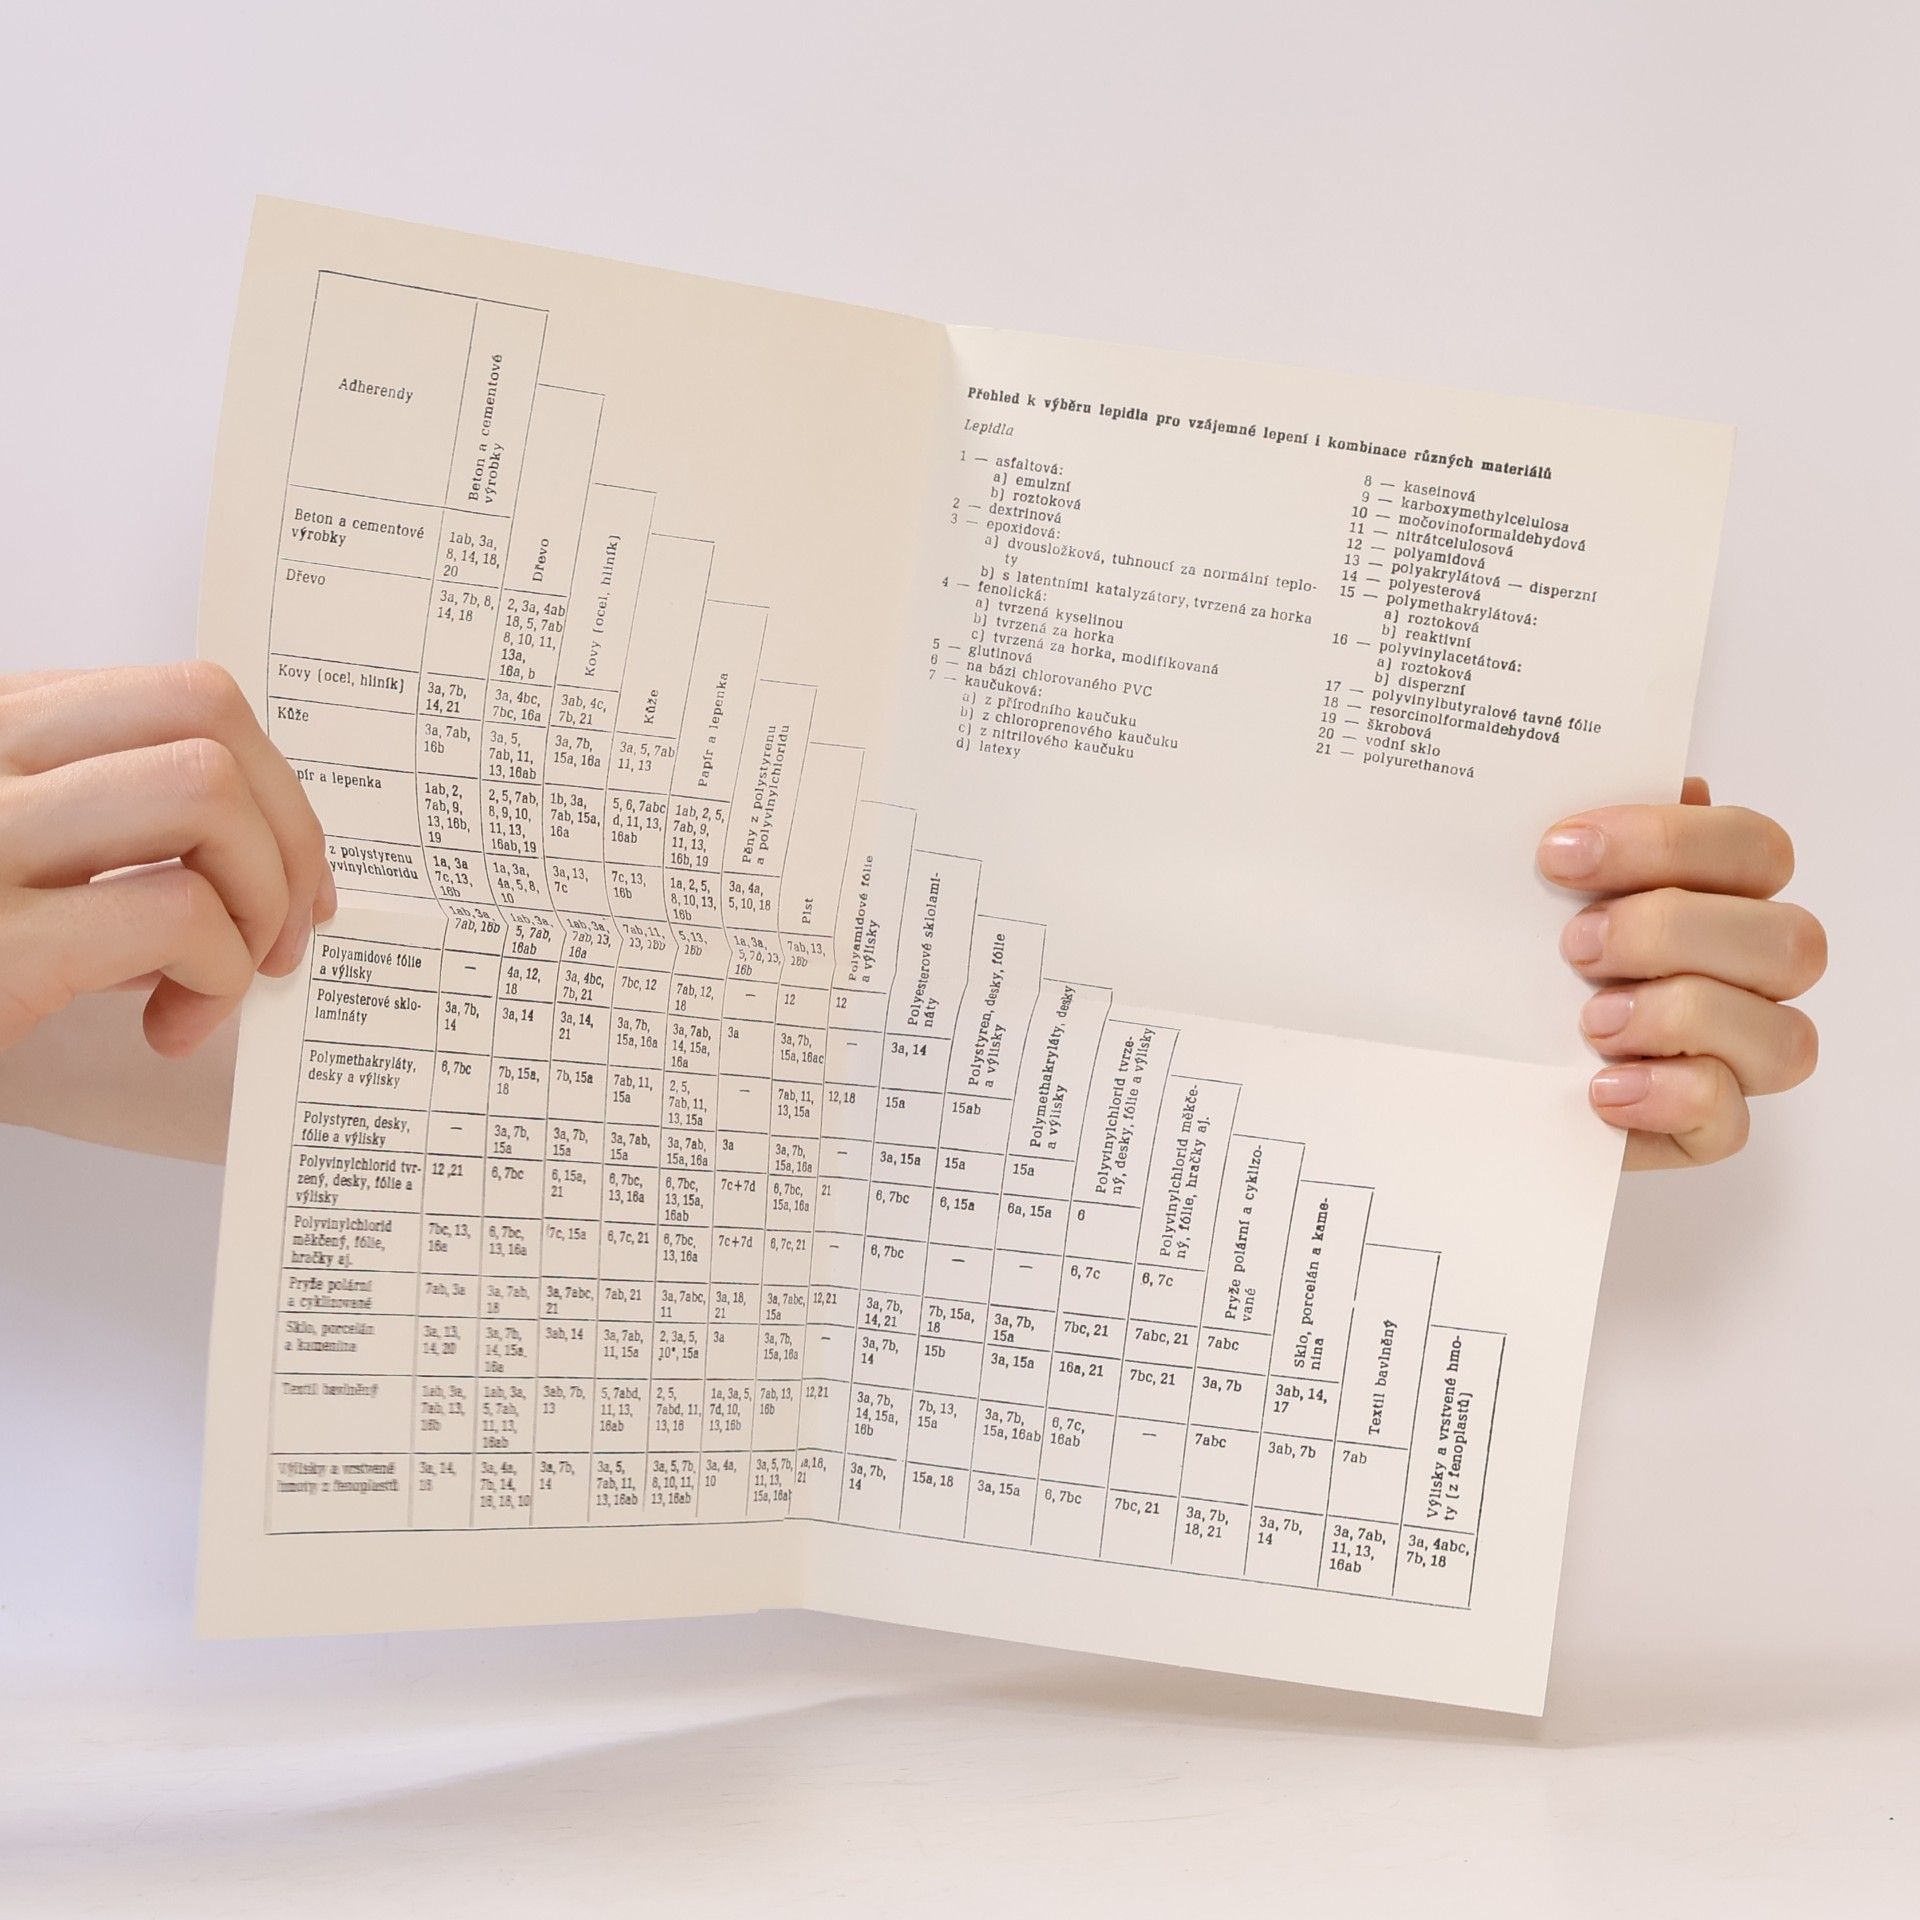 Adherendy
Beton a cementové
výrobky
Dřevo
Kovy (ocel, hliník)
Kůže
Papír a lepenka
Pěny z polystyrenu
a polyvinylchloridu
Plst
Polyamidové fólie
a výlisky
Polyesterové sklolami-
náty
Polystyren, desky, fólie
a výlisky
Polymethakryláty, desky
a výlisky
Polyvinylchlorid tvrze-
ný, desky, fólie a výlisky
Polyvinylchlorid měkče-
ný, fólie, hračky aj.
Pryže polární a cyklizo-
vané
Sklo, porcelán a kame-
nina
Textil bavlněný
Výlisky a vrstvené hmo-
ty (z fenoplastů)
Beton a cementové
výrobky
1ab, 3a,
8, 14, 18,
20
Dřevo
3a, 7b, 8,
14, 18
2, 3a, 4ab
18, 5, 7ab
8, 10, 11,
13a,
16a, b
Kovy (ocel, hliník)
3a, 7b,
14, 21
3a, 4bc,
7bc, 16a
3ab, 4c,
7b, 21
Kůže
3a, 7ab,
16b
3a, 5,
7ab, 11,
13, 16ab
3a, 7b,
15a, 16a
3a, 5, 7ab
11, 13
pír a lepenka
1ab, 2,
7ab, 9,
13, 16b,
19
2, 5, 7ab,
8, 9, 10,
11, 13,
16ab, 19
1b, 3a,
7ab, 15a,
16a
5, 6, 7abc
d, 11, 13,
16ab
1ab, 2, 5,
7ab, 9,
11, 13,
16b, 19
z polystyrenu
yvinylchloridu
1a, 3a
7c, 13,
16b
1a, 3a,
4a, 5, 8,
10
3a, 13,
7c
7c, 13,
16b
1a, 2, 5,
8, 10, 13,
16b
3a, 4a,
5, 10, 18
1ab, 3a,
7ab, 16b
1ab, 3a,
5, 7ab,
16ab
1ab, 3a,
7ab, 13,
16a
7ab, 11,
13, 16b
5, 13,
16b
1a, 3a,
5, 7b, 13,
16b
7ab, 13,
16b
Polyamidové fólie
a výlisky
—
4a, 12,
18
3a, 4bc,
7b, 21
7bc, 12
7ab, 12,
18
—
12
12
Polyesterové sklo-
lamináty
3a, 7b,
14
3a, 14
3a, 14,
21
3a, 7b,
15a, 16a
3a, 7ab,
14, 15a,
16a
3a
3a, 7b,
15a, 16ac
—
3a, 14
Polymethakryláty,
desky a výlisky
6, 7bc
7b, 15a,
18
7b, 15a
7ab, 11,
15a
2, 5,
7ab, 11,
13, 15a
—
7ab, 11,
13, 15a
12, 18
15a
15ab
Polystyren, desky,
fólie a výlisky
—
3a, 7b,
15a
3a, 7b,
15a
3a, 7ab,
15a
3a, 7ab,
15a, 16a
3a
3a, 7b,
15a, 16a
—
3a, 15a
15a
15a
Polyvinylchlorid tvr-
zený, desky, fólie a
výlisky
12, 21
6, 7bc
6, 15a,
21
6, 7bc,
13, 16a
6, 7bc,
13, 15a,
16ab
7c+7d
6, 7bc,
15a, 16a
21
6, 7bc
6, 15a
6a, 15a
6
Polyvinylchlorid
měkčený, fólie,
hračky aj.
7bc, 13,
16a
6, 7bc,
13, 16a
7c, 15a
6, 7c, 21
6, 7bc,
13, 16a
7c+7d
6, 7c, 21
—
6, 7bc
—
—
6, 7c
6, 7c
Pryže polární
a cyklizované
7ab, 3a
3a, 7ab,
18
3a, 7abc,
21
7ab, 21
3a, 7abc,
11
3a, 18,
21
3a, 7abc,
15a
12, 21
3a, 7b,
14, 21
7b, 15a,
18
3a, 7b,
15a
7bc, 21
7abc, 21
7abc
Sklo, porcelán
a kamenina
3a, 13,
14, 20
3a, 7b,
14, 15a,
16a
3ab, 14
3a, 7ab,
11, 15a
2, 3a, 5,
10*, 15a
3a
3a, 7b,
15a, 16a
—
3a, 7b,
14
15b
3a, 15a
16a, 21
7bc, 21
3a, 7b
3ab, 14,
17
Textil bavlněný
1ab, 3a,
7ab, 13,
16b
1ab, 3a,
5, 7ab,
11, 13,
16ab
3ab, 7b,
13
5, 7abd,
11, 13,
16ab
2, 5,
7abd, 11,
13, 16
1a, 3a, 5,
7d, 10,
13, 16b
7ab, 13,
16b
12, 21
3a, 7b,
14, 15a,
16b
7b, 13,
15a
3a, 7b,
15a, 16ab
6, 7c,
16ab
—
7abc
3ab, 7b
7ab
Výlisky a vrstvené
hmoty z fenoplastů
3a, 14,
18
3a, 4a,
7b, 14,
16, 18, 10
3a, 7b,
14
3a, 5,
7ab, 11,
13, 16ab
3a, 5, 7b,
8, 10, 11,
13, 16ab
3a, 4a,
10
3a, 5, 7b,
11, 13,
15a, 16a
18,
21
3a, 7b,
14
15a, 18
3a, 15a
6, 7bc
7bc, 21
3a, 7b,
18, 21
3a, 7b,
14
3a, 7ab,
11, 13,
16ab
3a, 4abc,
7b, 18
Přehled k výběru lepidla pro vzájemné lepení i kombinace různých materiálů
Lepidla
1 — asfaltová:
a) emulzní
b) roztoková
2 — dextrinová
3 — epoxidová:
a) dvousložková, tuhnoucí za normální teplo-
ty
b) s latentními katalyzátory, tvrzená za horka
4 — fenolická:
a) tvrzená kyselinou
b) tvrzená za horka
c) tvrzená za horka, modifikovaná
5 — glutinová
6 — na bázi chlorovaného PVC
7 — kaučuková:
a) z přírodního kaučuku
b) z chloroprenového kaučuku
c) z nitrilového kaučuku
d) latexy
8 — kaseinová
9 — karboxymethylcelulosa
10 — močovinoformaldehydová
11 — nitrátcelulosová
12 — polyamidová
13 — polyakrylátová — disperzní
14 — polyesterová
15 — polymethakrylátová:
a) roztoková
b) reaktivní
16 — polyvinylacetátová:
a) roztoková
b) disperzní
17 — polyvinylbutyralové tavné fólie
18 — resorcinolformaldehydová
19 — škrobová
20 — vodní sklo
21 — polyurethanová